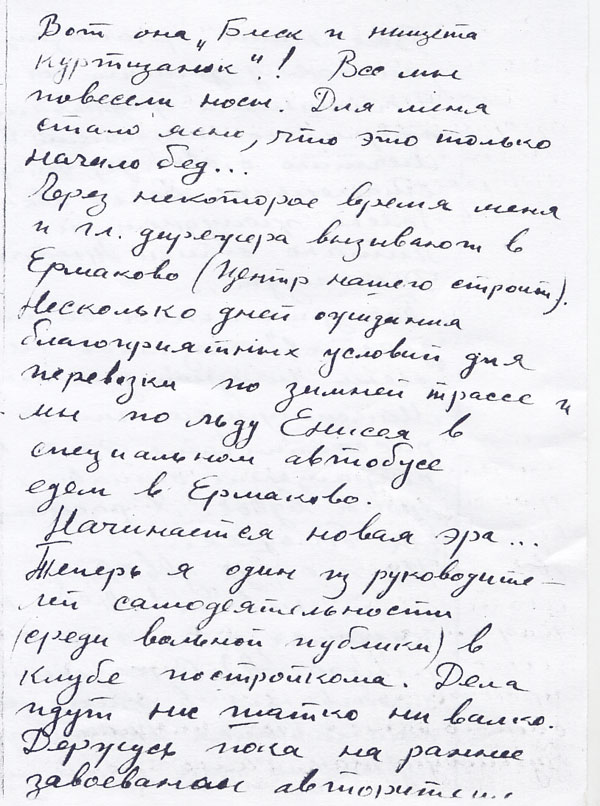 Вот она „Блеск и нищета
куртизанок“.! Все мы
повесели носы. Для меня
стало ясно, что это только
начало бед...
Через некоторое время меня
и гл. дирежера вызывают в
Ермаково (Центр нашего строит).
Несколько дней ожидания
благоприятных условий для
перевозки по зимней трассе и
мы по льду Енисея в
специальном автобусе
едем в Ермаково.
Начинается новая эра...
Теперь я один из руководите-
лей самодеятельности
(среди вольной публики) в
клубе постройкома. Дела
идут ни шатко ни валко.
Держусь пока на ранее
завоеванном авторитете...